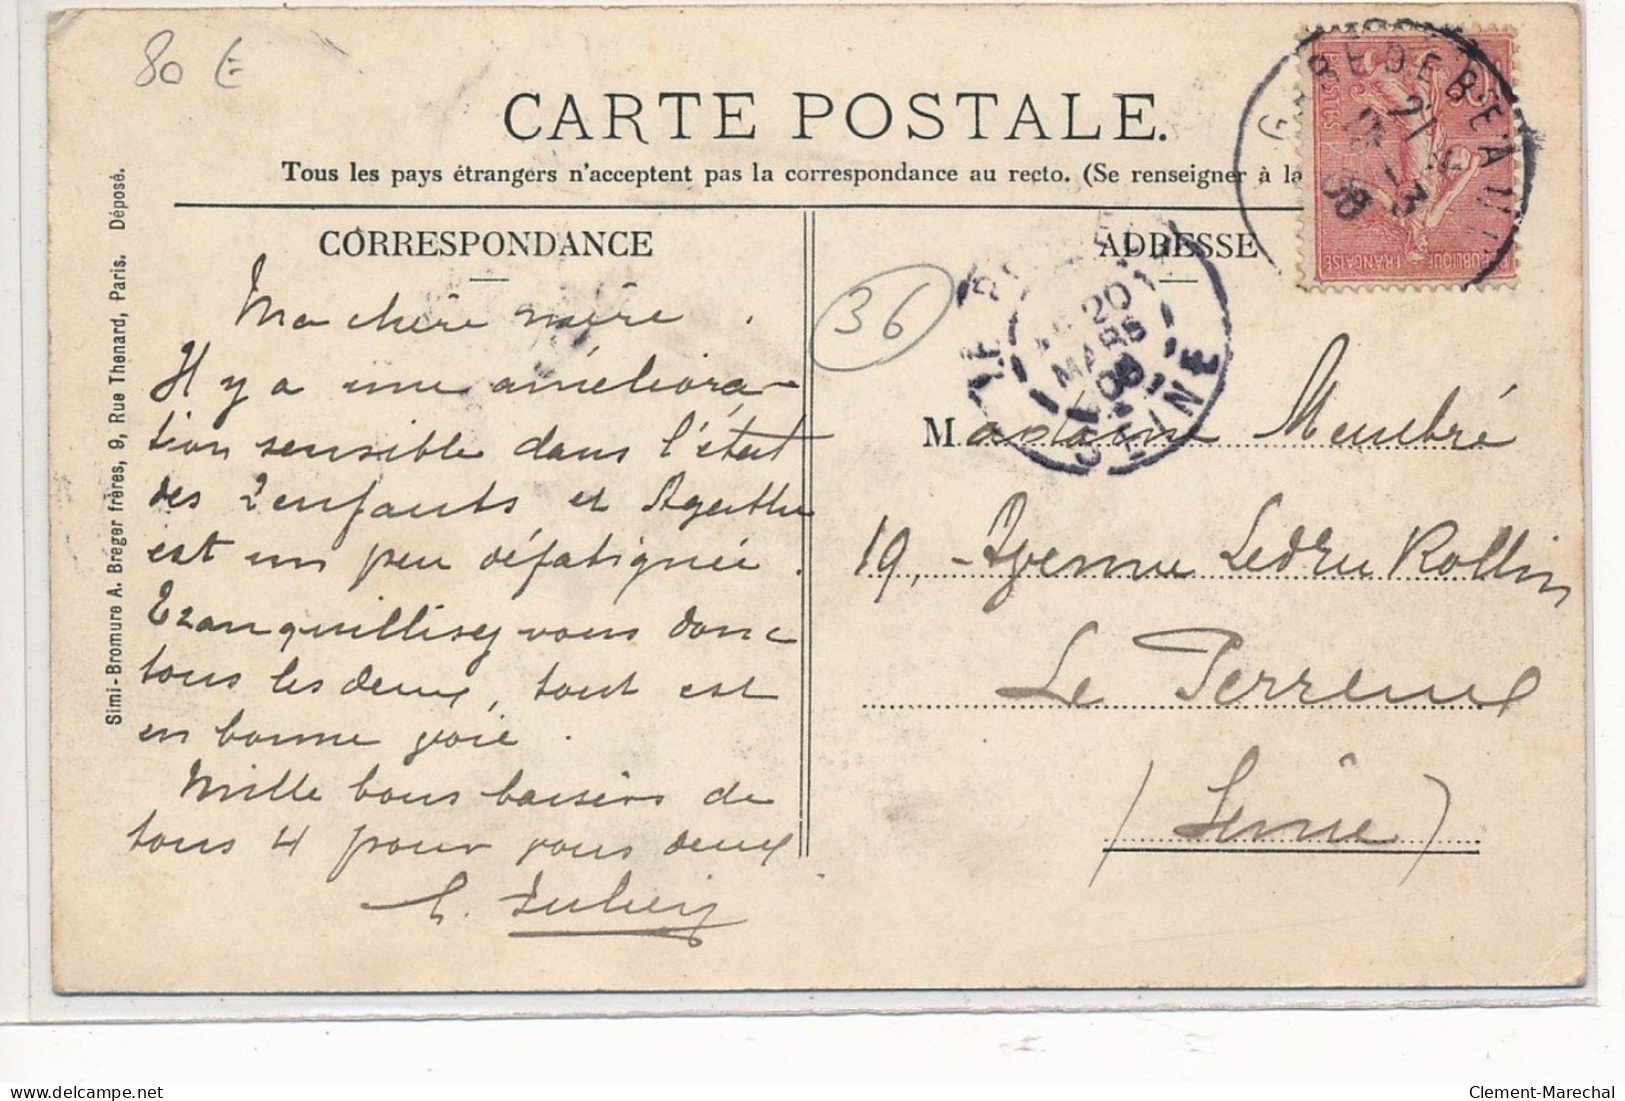 80 €
CARTE POSTALE.
Tous les pays étrangers n'acceptent pas la correspondance au recto. (Se renseigner à la
CORRESPONDANCE
Ma chère mère.
Il y a une améliora-
tion sensible dans l'état
des 2 enfants et Agathe
est un peu défatiguée.
Tranquillisez vous donc
tous les deux, tout est
en bonne voie.
Mille bons baisers de
tous 4 pour vous deux
Simi-Bromure A. Breger frères, 9, Rue Thenard, Paris. Déposé.
36
ADRESSE
Madame Membré
19, Avenue Ledru Rollin
Le Perreux
(Seine)
RÉPUBLIQUE FRANÇAISE
POSTES
GARE DE BEAU
21
3
08
LE PE
20
MARS
08
SEINE
Clement-Marechal